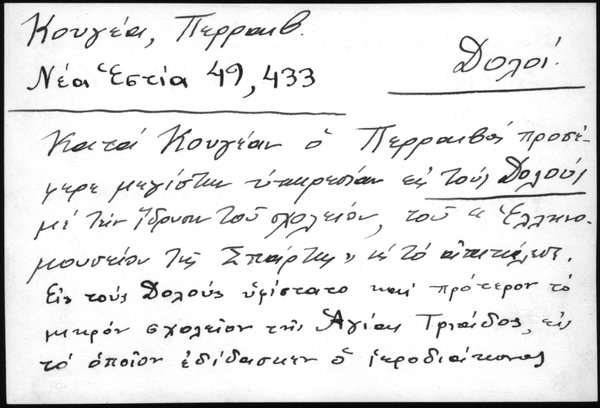 Κουγέα, Περραιβ.
Νέα Ἑστία 49, 433
Δολοί.
Κατά Κουγέαν ὁ Περραιβός προσέ-
φερε μεγίστην ὑπηρεσίαν εἰς τούς Δολούς
μέ τήν ἵδρυσιν τοῦ σχολείου, τοῦ « Ἑλληνο-
μουσείου τῆς Σπάρτης» ὡς τό ἀπεκάλεσε.
Εἰς τούς Δολούς ὑφίστατο καί πρότερον τό
μικρόν σχολεῖον τῆς Ἁγίας Τριάδος, εἰς
τό ὁποῖον ἐδίδασκεν ὁ ἱεροδιάκονος